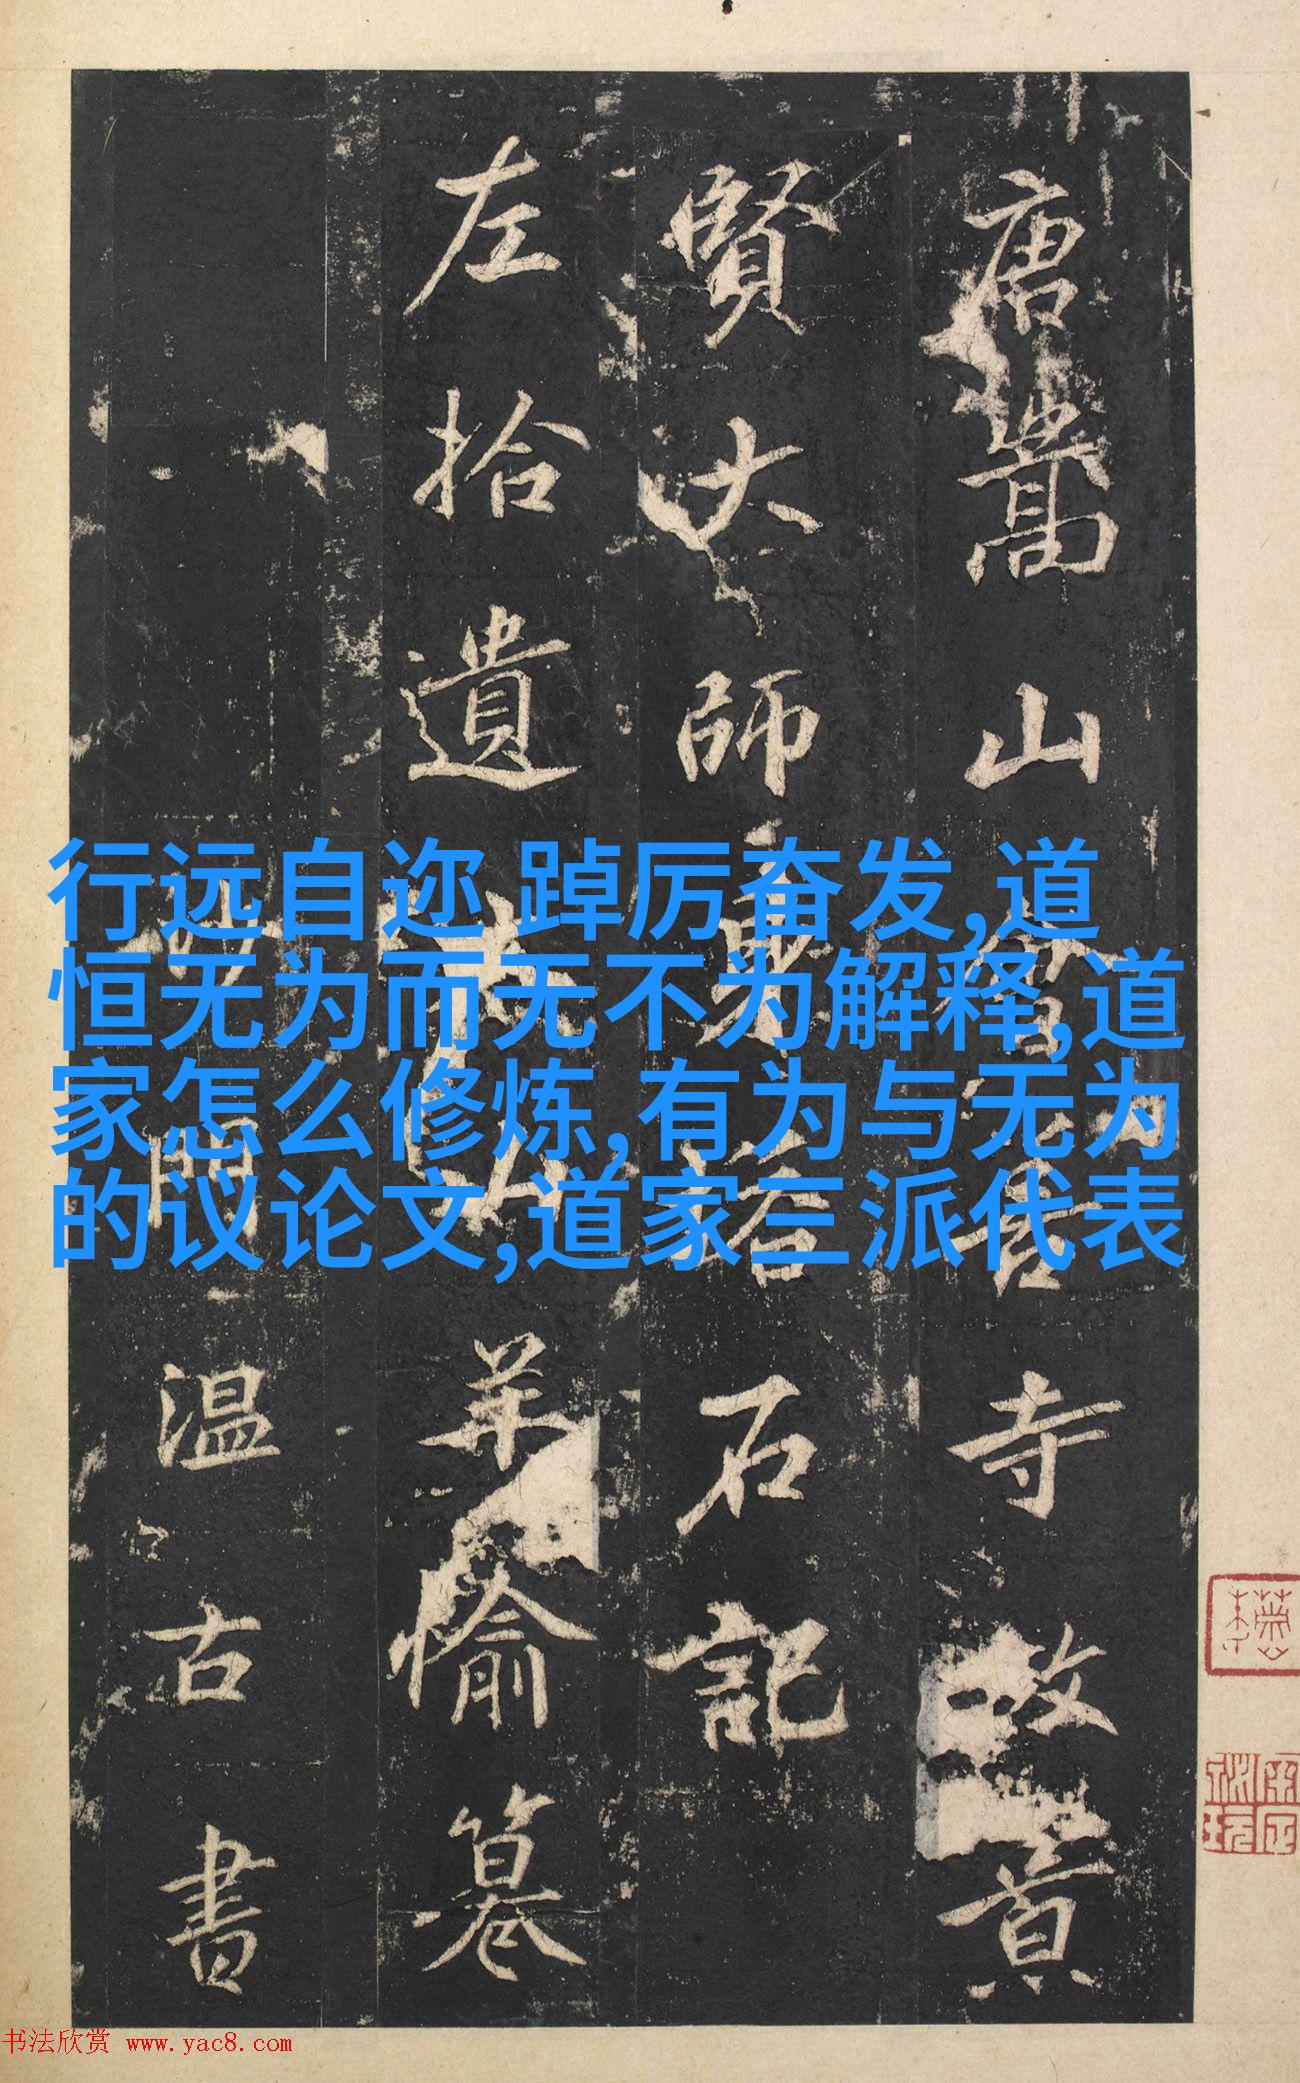 唐嵩山會善寺故景
賢大師身塔石記
左拾遺太山羊愉篹
沙門溫古書
行远自迩 踔厉奋发,道
恒无为而无不为解释,道
家怎么修炼,有为与无为
的议论文,道家三派代表
书法欣赏 www.yac8.com